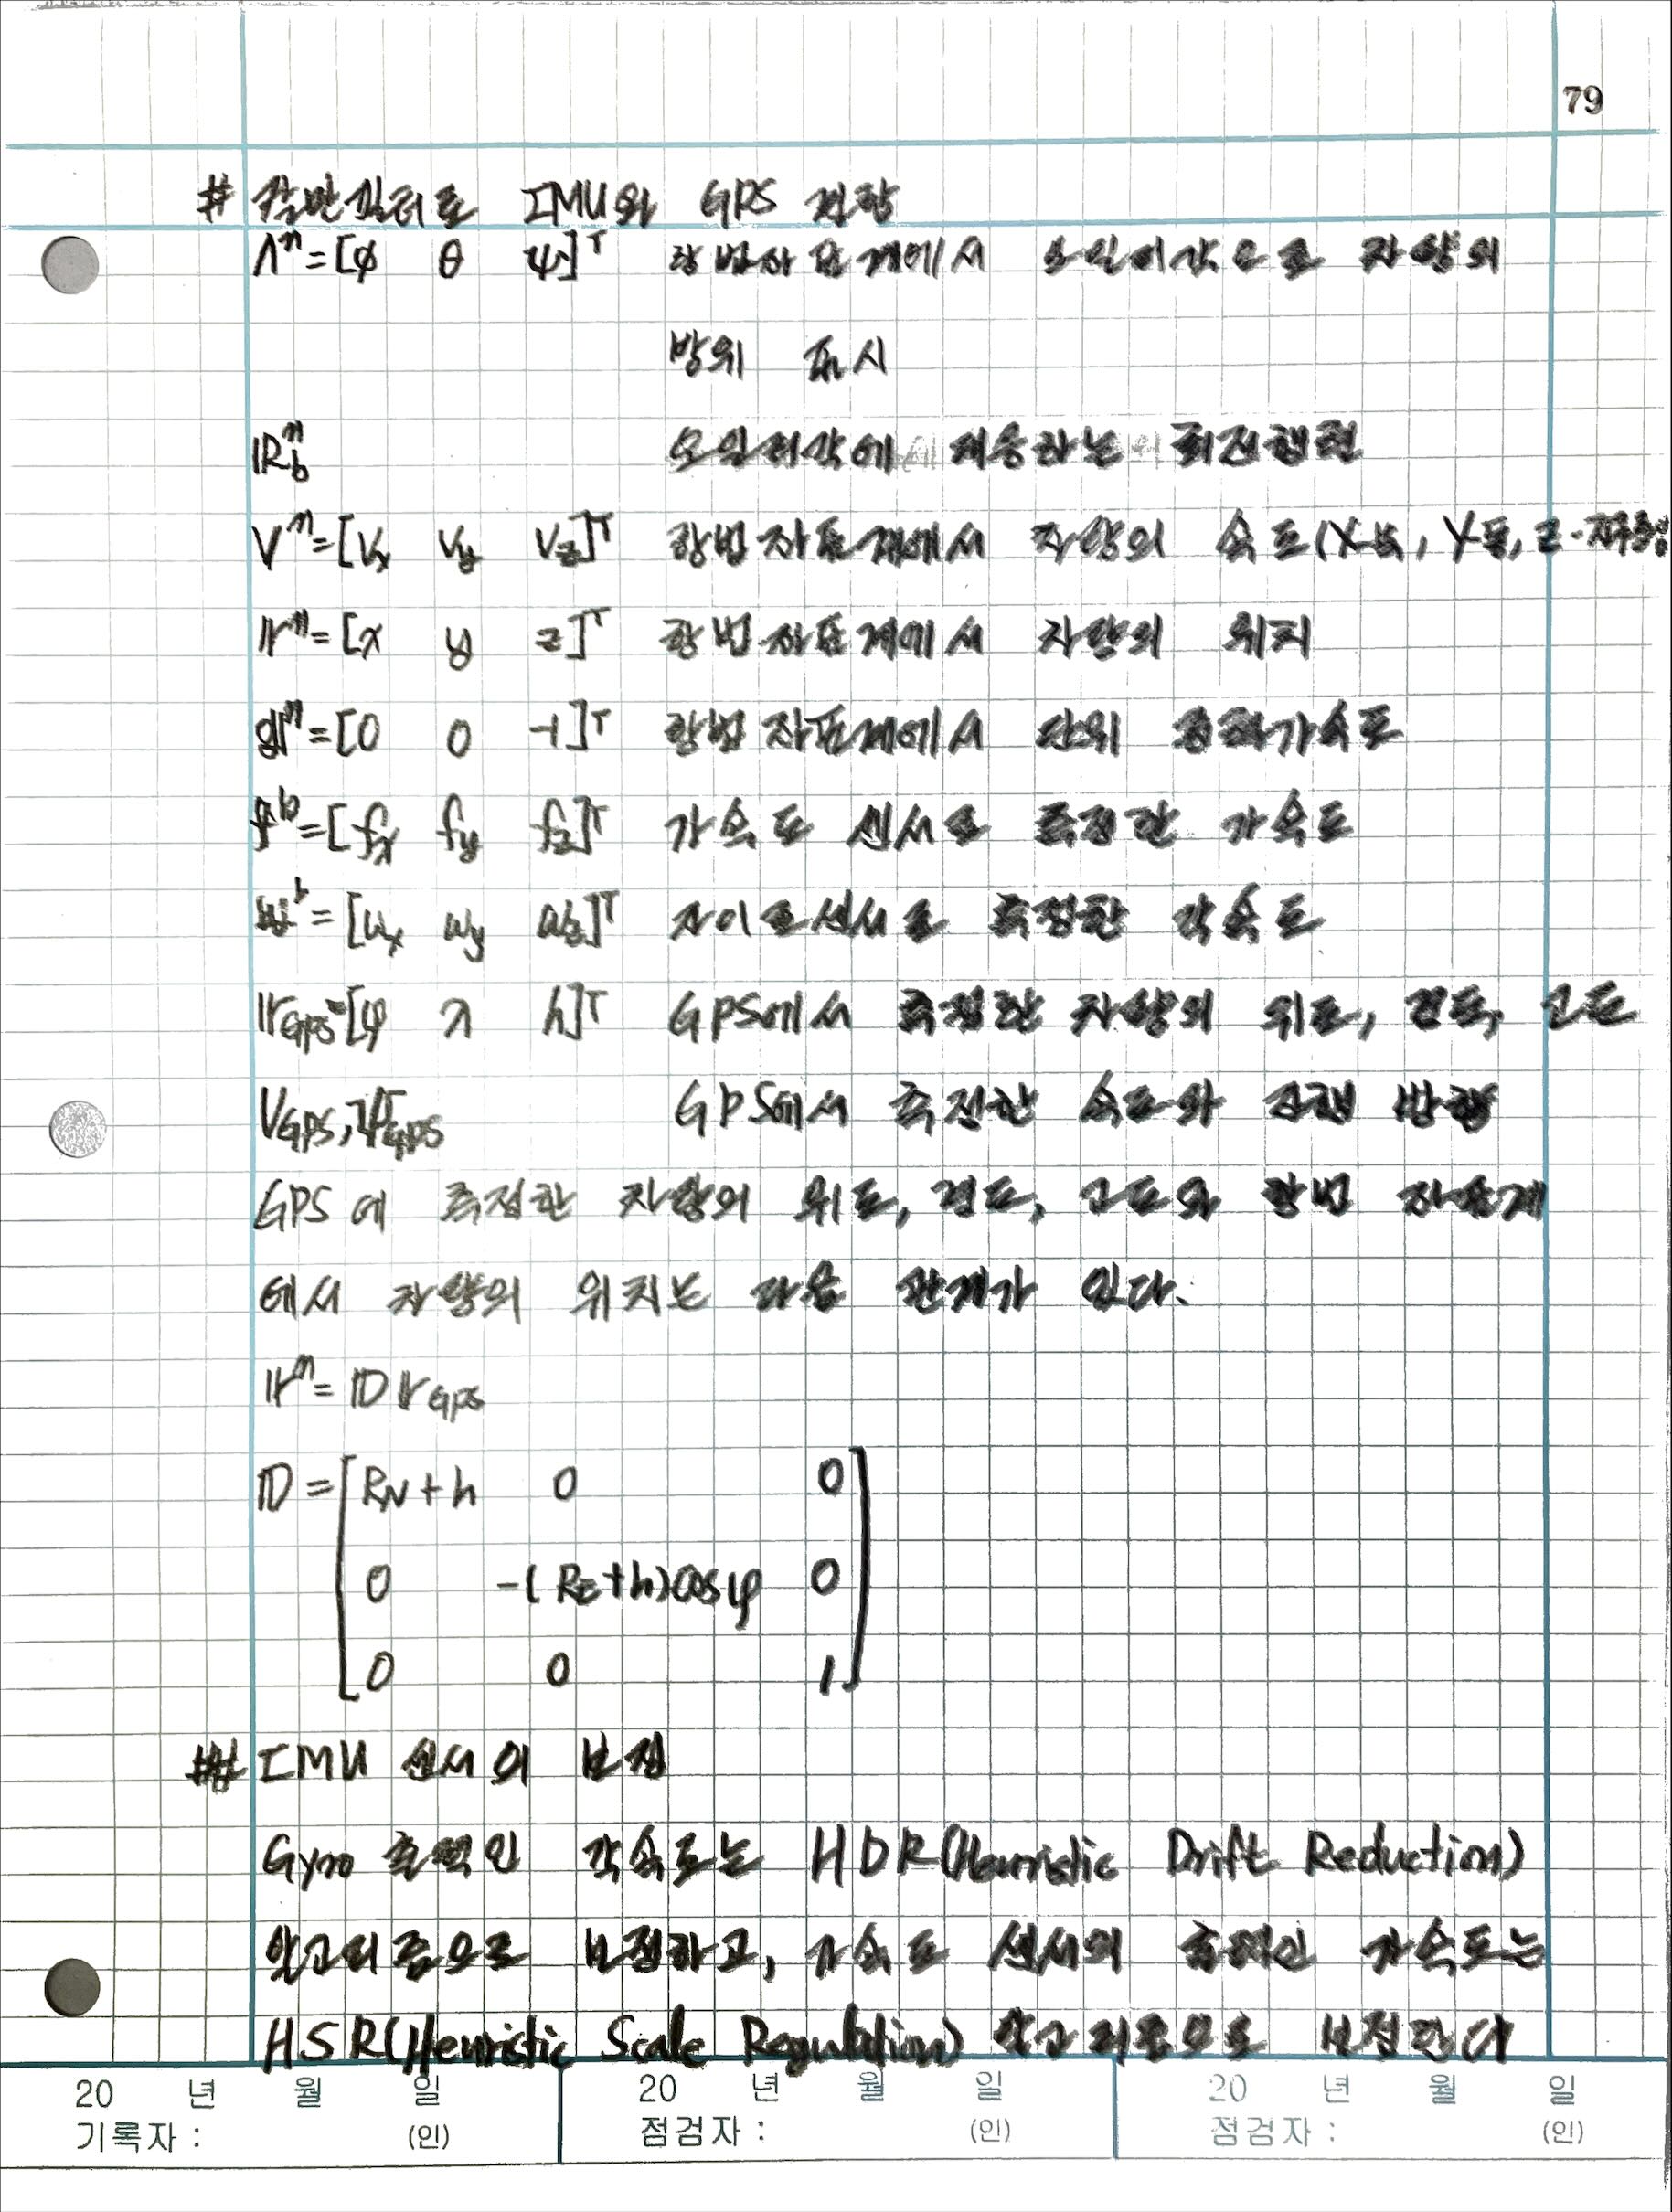 79
# 칼만필터로 IMU와 GPS 결합
Λⁿ=[φ θ ψ]ᵀ 항법좌표계에서 오일러각으로 차량의
방위 표시
ℝⁿ_b 오일러각에 대응하는 회전행렬
Vⁿ=[Vx Vy Vz]ᵀ 항법좌표계에서 차량의 속도(X-북, Y동, Z-지구중심
rⁿ=[x y z]ᵀ 항법좌표계에서 차량의 위치
gⁿ=[0 0 -1]ᵀ 항법좌표계에서 단위 중력가속도
fᵇ=[fx fy fz]ᵀ 가속도 센서로 측정한 가속도
wᵇ=[ωx ωy ωz]ᵀ 자이로센서로 측정한 각속도
r_GPS=[φ λ h]ᵀ GPS에서 측정한 차량의 위도, 경도, 고도
V_GPS, ψ_GPS GPS에서 측정한 속도와 진행 방향
GPS에 측정한 차량의 위도, 경도, 고도와 항법 좌표계
에서 차량의 위치는 다음 관계가 있다.
rⁿ=D r_GPS
D=[R_N+h 0 0
0 -(R_E+h)cosφ 0
0 0 1]
## IMU 센서의 보정
Gyro 출력인 각속도는 HDR(Heuristic Drift Reduction)
알고리즘으로 보정하고, 가속도 센서의 출력인 가속도는
HSR(Heuristic Scale Regulation) 알고리즘으로 보정한다
20 년 월 일 20 년 월 일 20 년 월 일
기록자 : (인) 점검자 : (인) 점검자 : (인)